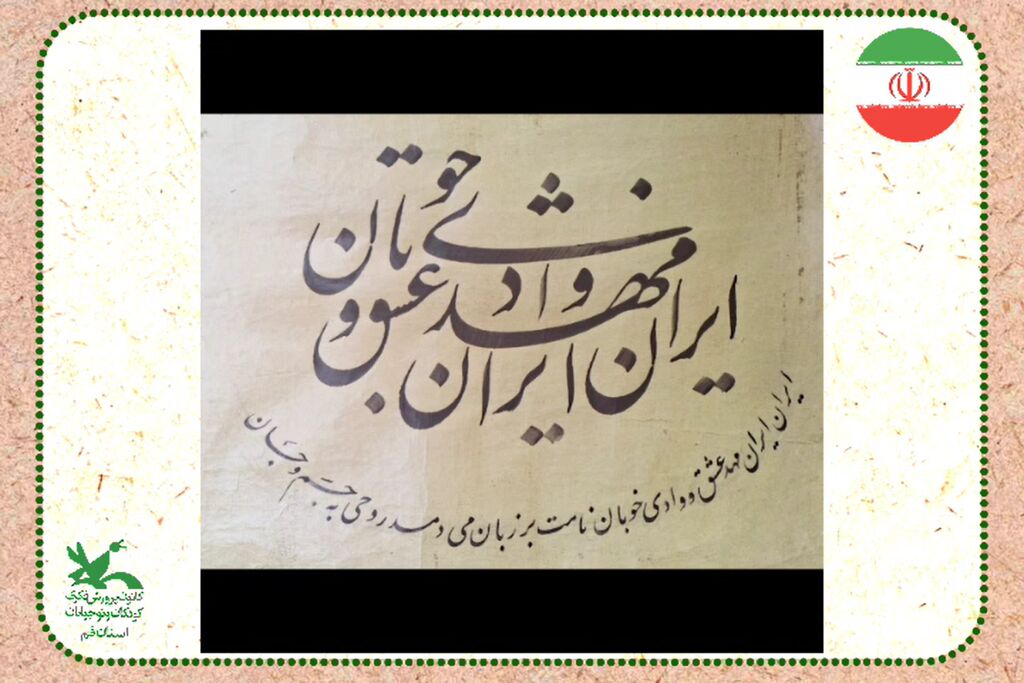 ایران ایران مهد عشق و وادی خوبان
ایران ایران مهد عشق و وادی خوبان نامت بر زبان می دمد روحی به جسم و جان
کانون پرورش فکری
کودکان و نوجوانان
استان قم